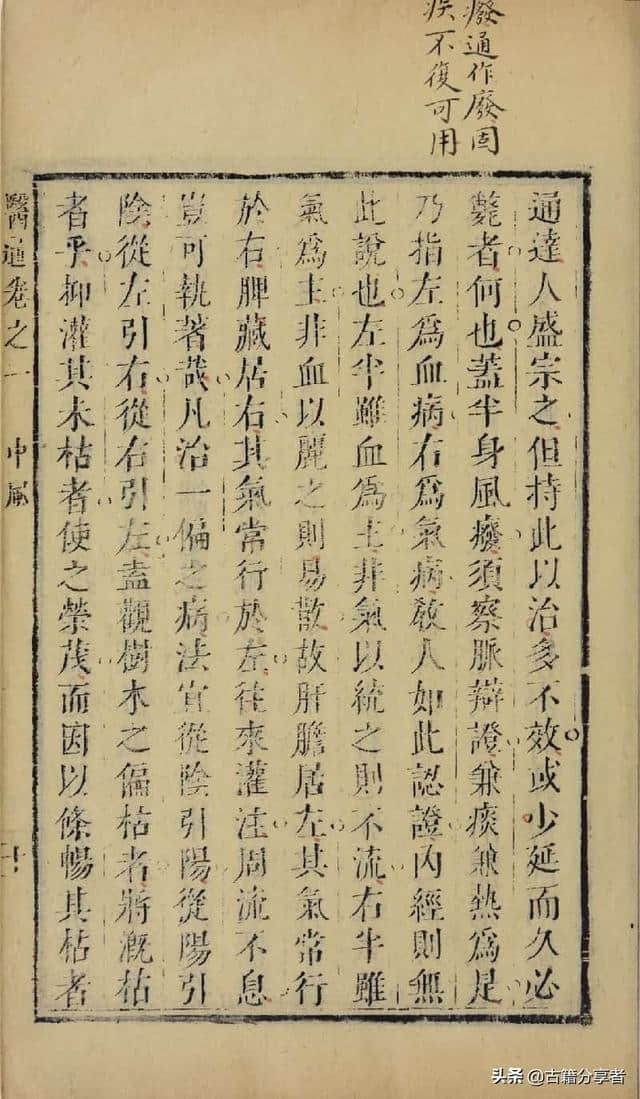 癈通作廢固
疾不復可用
通達人盛宗之但持此以治多不效或少延而久必
斃者何也蓋半身風癈須察脈辯證兼痰兼熱爲是
乃指左爲血病右爲氣病教人如此認證內經則無
此說也左半雖血爲主非氣以統之則不流右半雖
氣爲主非血以麗之則易散故肝膽居左其氣常行
於右脾藏居右其氣常行於左往來灌注周流不息
豈可執著哉凡治一偏之病法宜從陰引陽從陽引
陰從左引右從右引左盍觀樹木之偏枯者將溉枯
者乎抑灌其未枯者使之榮茂而因以條暢其枯者
醫通卷之一 中風 十
头条 @古籍分享者